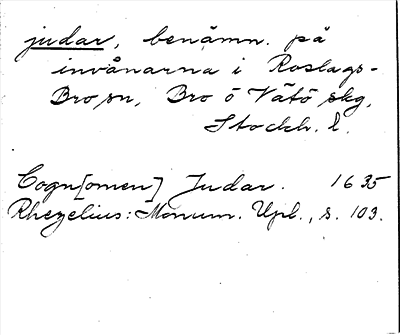 judar, benämn. på
invånarna i Roslags-
Bro sn, Bro ö Vätö skg,
Stockh. l.
Cogn[omen] Judar. 1635
Rhezelius: Monum. Upl., s. 103.